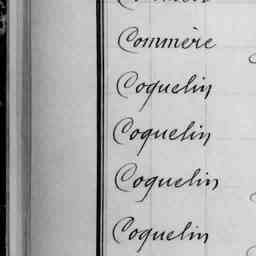 Commère
Coquelin
Coquelin
Coquelin
Coquelin